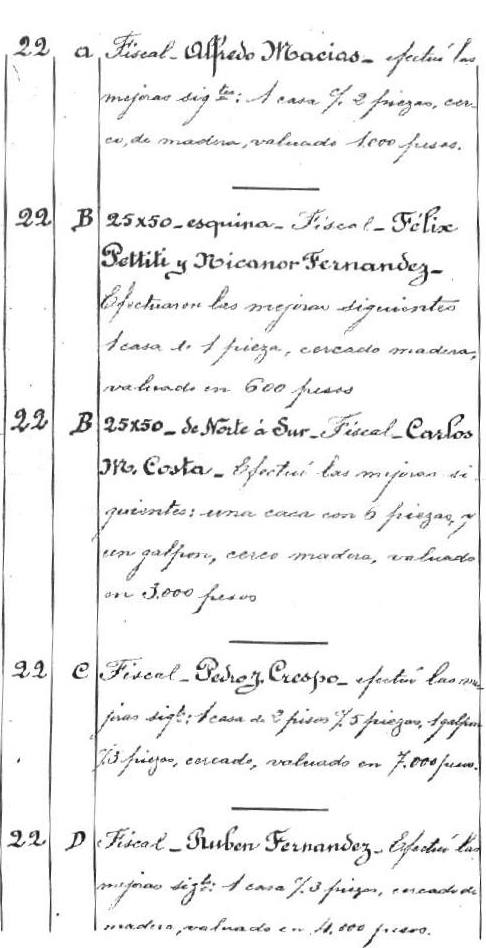 22 a Fiscal - Alfredo Macias - efectuó las
mejoras sigtes: 1 casa c/. 2 piezas, cer-
co, de madera, valuado 1.000 pesos.
22 B 25x50 - esquina - Fiscal - Félix
Pettiti y Nicanor Fernandez -
Efectuaron las mejoras siguientes
1 casa de 1 pieza, cercado madera,
valuado en 600 pesos
22 B 25x50 - de Norte á Sur - Fiscal - Carlos
M. Costa - Efectuó las mejoras si-
guientes: una casa con 6 piezas, y
un galpon, cerco madera, valuado
en 3.000 pesos
22 C Fiscal - Pedro Z. Crespo - efectuó las me-
joras sigte: 1 casa de 2 pisos c/. 5 piezas, 1 galpon
c/. 3 piezas, cercado, valuado en 7.000 pesos.
22 D Fiscal - Ruben Fernandez - Efectuó las
mejoras sigte: 1 casa c/. 3 piezas, cercado de
madera, valuado en 4.000 pesos.